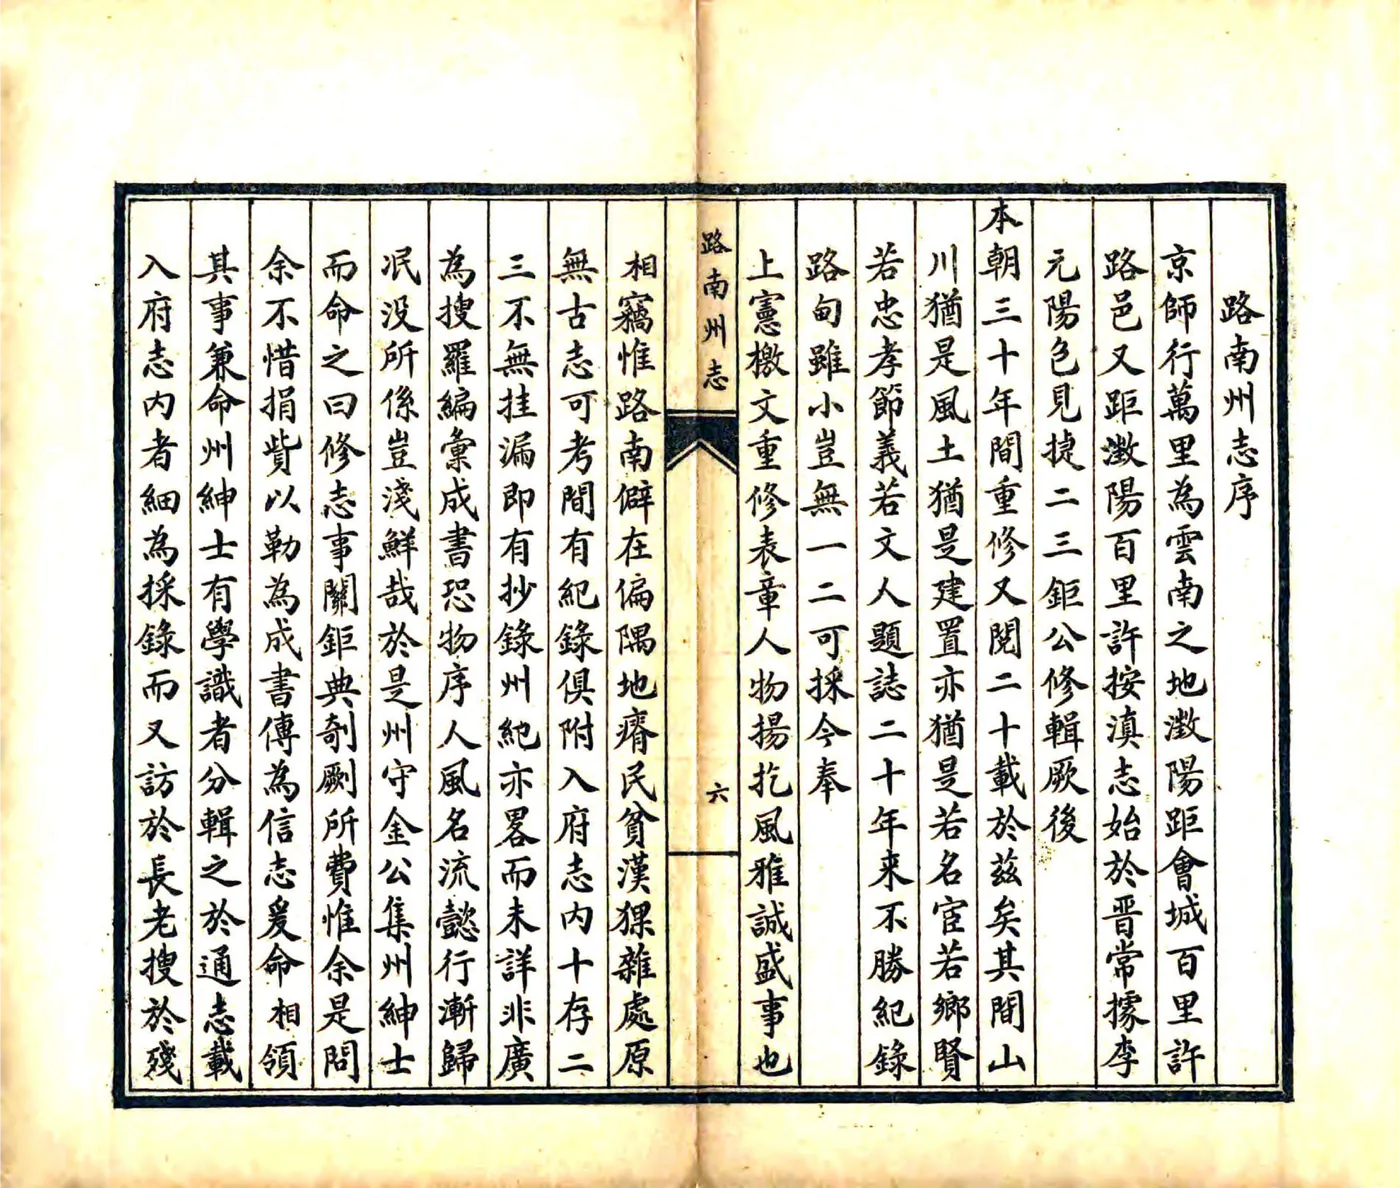 路南州志序
京師行萬里為雲南之地澂陽距會城百里許
路邑又距澂陽百里許按滇志始於晋常據李
元陽包見捷二三鉅公修輯厥後
本朝三十年間重修又閱二十載於茲矣其間山
川猶是風土猶是建置亦猶是若名宦若鄉賢
若忠孝節義若文人題誌二十年来不勝紀錄
路甸雖小豈無一二可採今奉
上憲檄文重修表章人物揚扢風雅誠盛事也
路南州志
六
相竊惟路南僻在偏隅地瘠民貧漢猓雜處原
無古志可考間有紀錄俱附入府志内十存二
三不無挂漏即有抄錄州紀亦畧而未詳非廣
為搜羅編彙成書恐物序人風名流懿行漸歸
泯没所係豈淺鮮哉於是州守金公集州紳士
而命之曰修志事關鉅典剞劂所費惟余是問
余不惜捐貲以勒為成書傳為信志爰命相領
其事兼命州紳士有學識者分輯之於通志載
入府志内者細為採錄而又訪於長老搜於殘